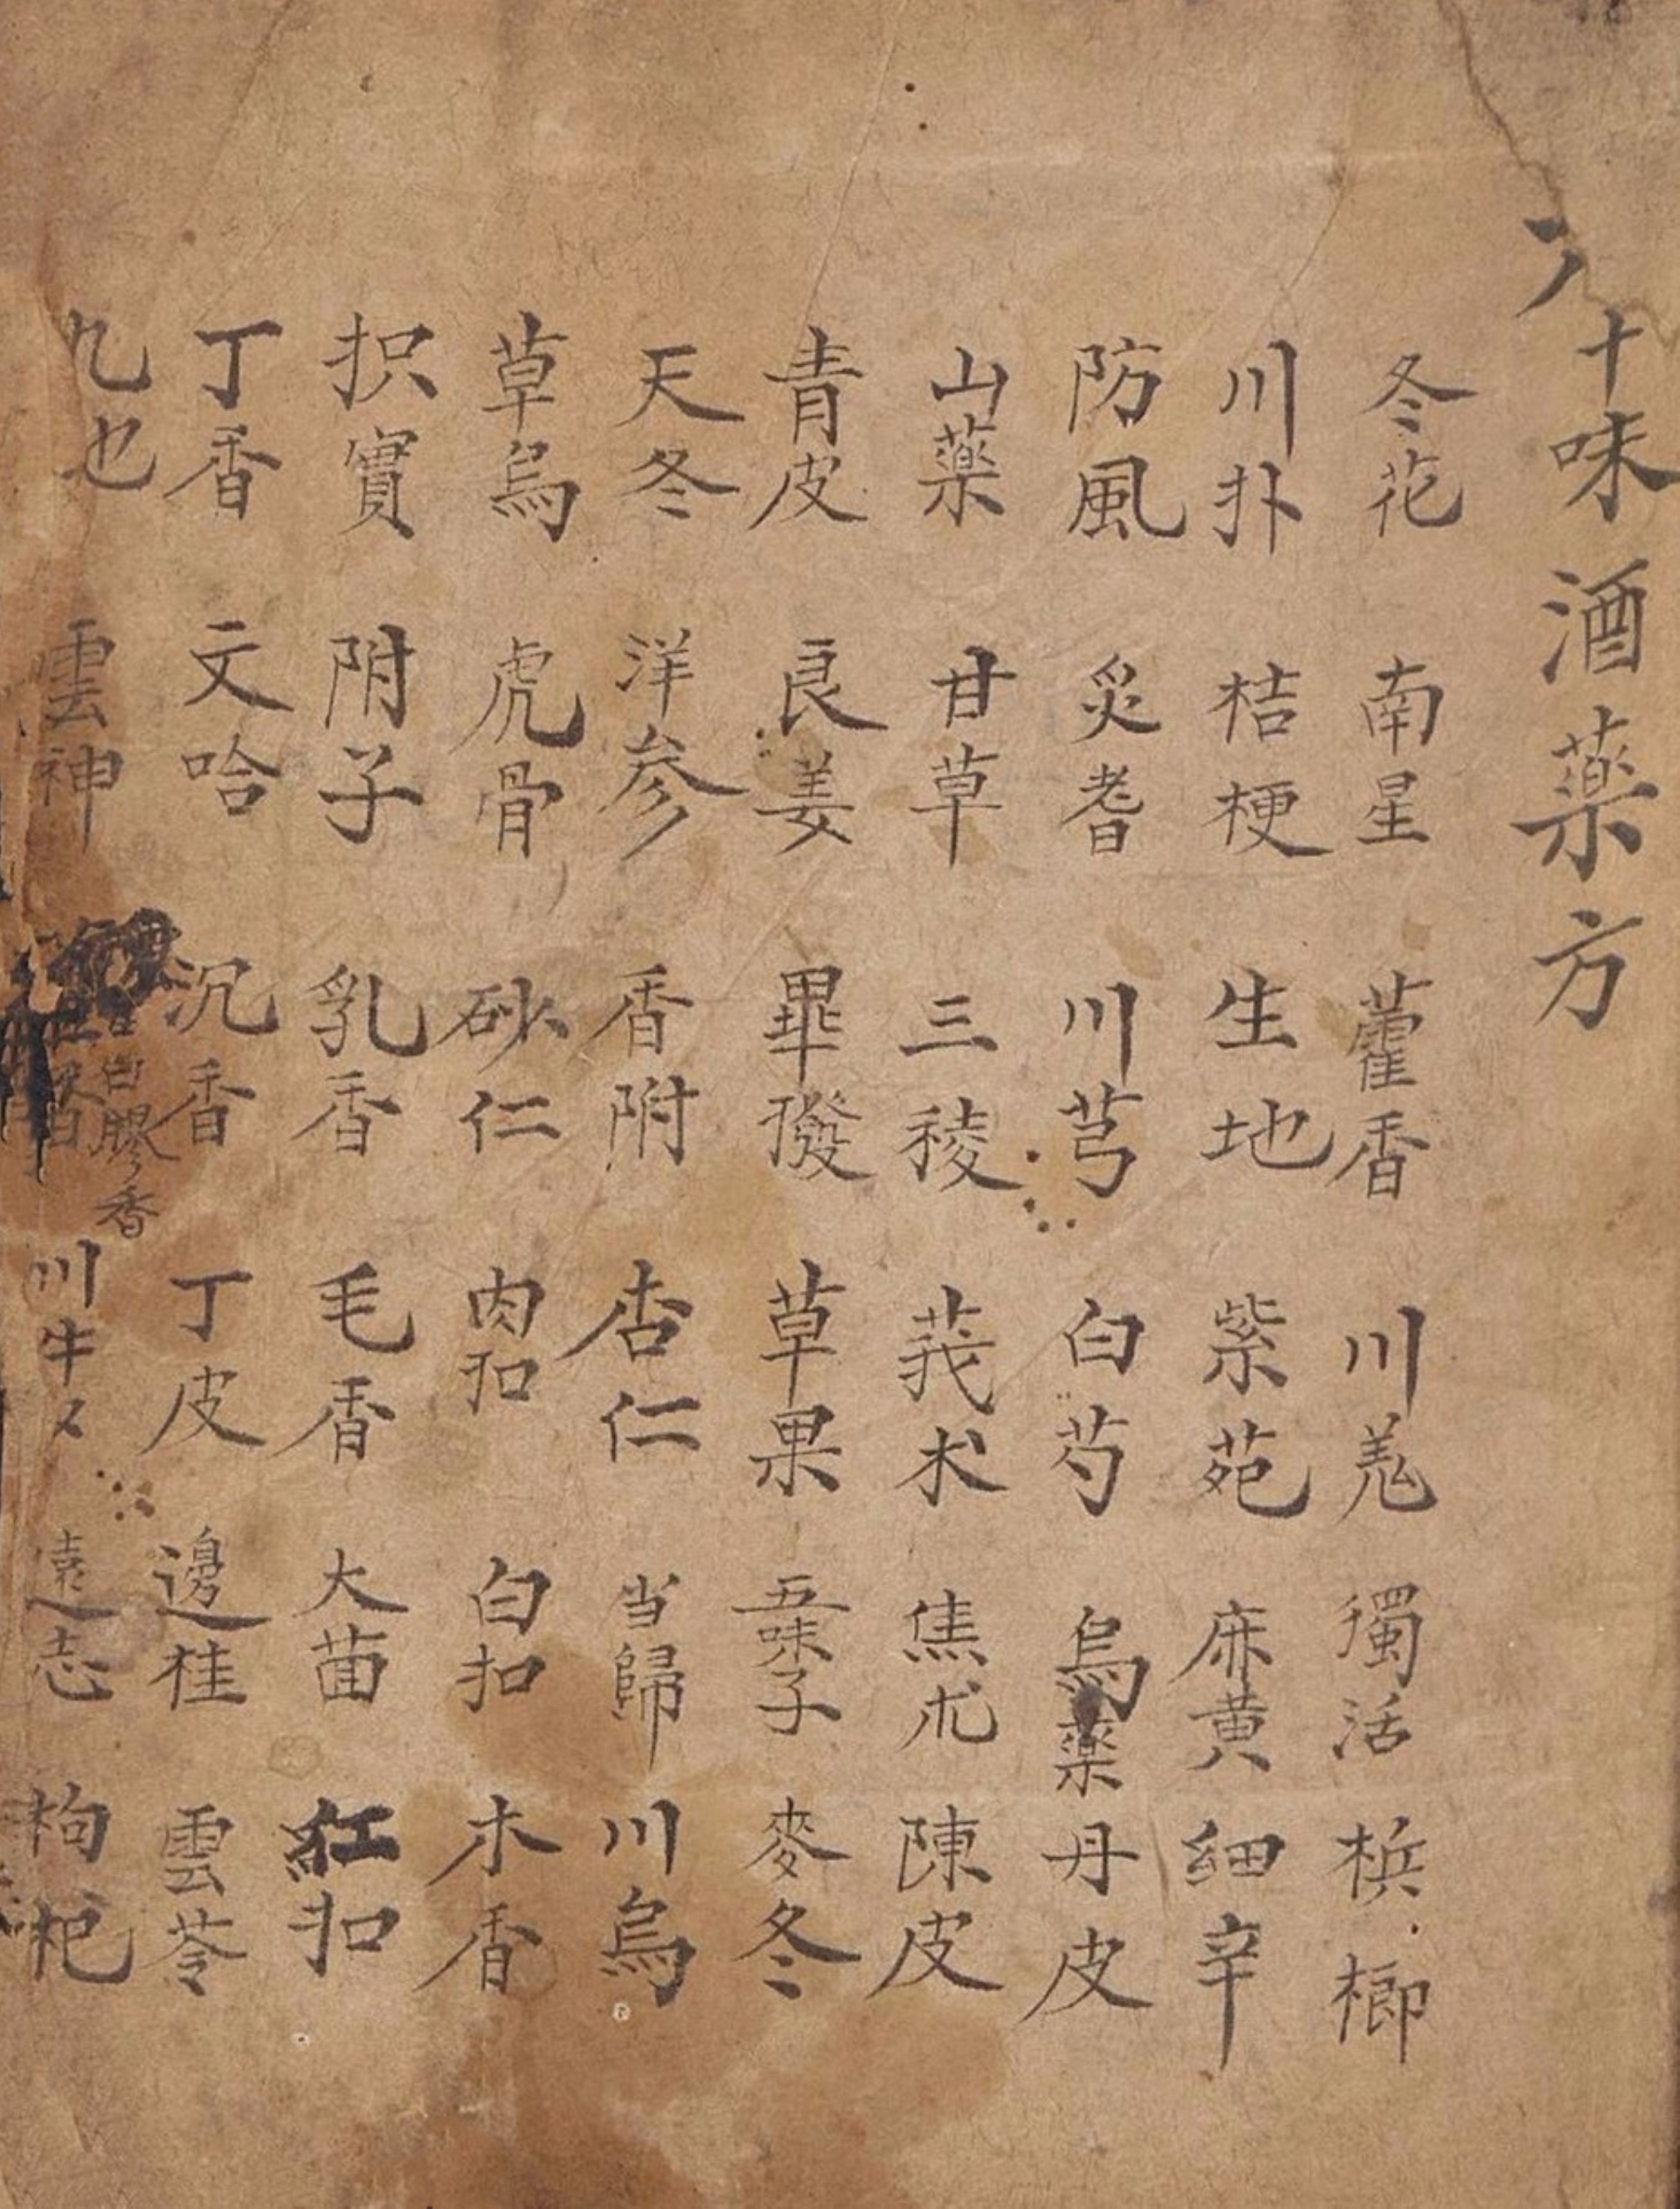 十味酒藥方
冬花 南星 藿香 川羗 獨活 梹榔
川扑 桔梗 生地 紫苑 麻黄 細辛
防風 炙耆 川芎 白芍 烏藥 丹皮
山藥 甘草 三稜 莪朮 焦朮 陳皮
青皮 良姜 畢撥 草果 五味子 麥冬
天冬 洋参 香附 杏仁 当歸 川烏
草烏 虎骨 砂仁 肉扣 白扣 木香
抧實 附子 乳香 毛香 大茴 紅扣
丁香 文哈 沉香 丁皮 邊桂 雲苓
白膠香
乜也 雲神 川牛 遠志 枸杞